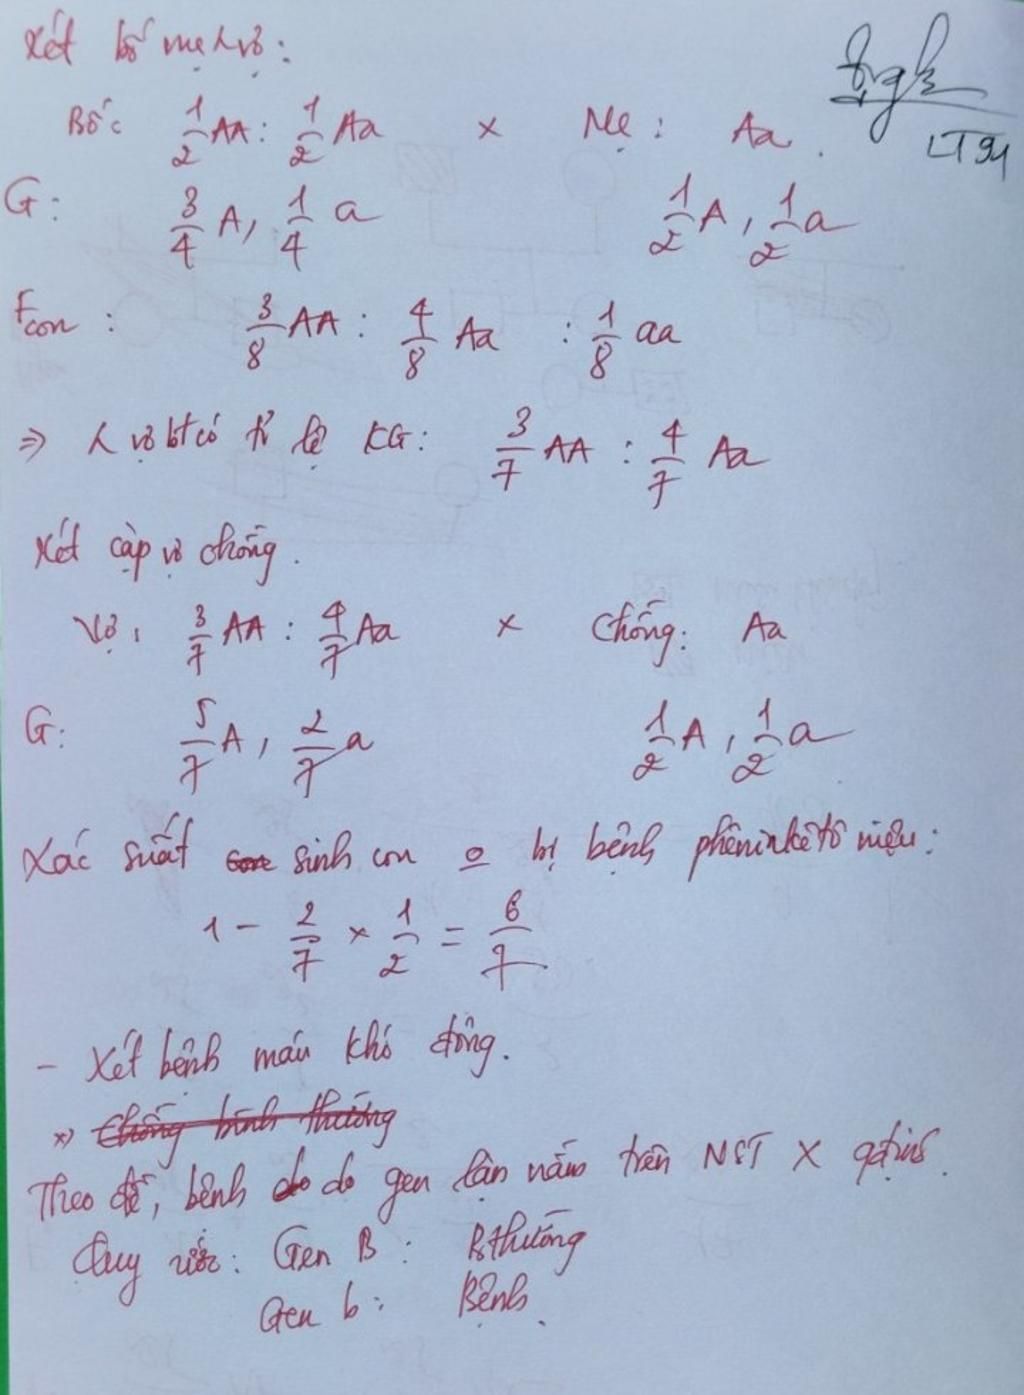 Xét bố mẹ vợ:
Bố: 1/2 AA : 1/2 Aa × Mẹ : Aa.
LT94
G: 3/4 A, 1/4 a 1/2 A, 1/2 a
Fcon : 3/8 AA : 4/8 Aa : 1/8 aa
=> vợ bt có tỉ lệ KG: 3/7 AA : 4/7 Aa
Xét cặp vợ chồng.
Vợ: 3/7 AA : 4/7 Aa × Chồng: Aa
G: 5/7 A, 2/7 a 1/2 A, 1/2 a
Xác suất sinh con o bị bệnh phêninkêtô niệu:
1 - 2/7 × 1/2 = 6/7
- Xét bệnh máu khó đông.
*) Chồng bình thường
Theo đề, bệnh do do gen lặn nằm trên NST X qđịnh.
Quy ước: Gen B : Bthường
Gen b : Bệnh.